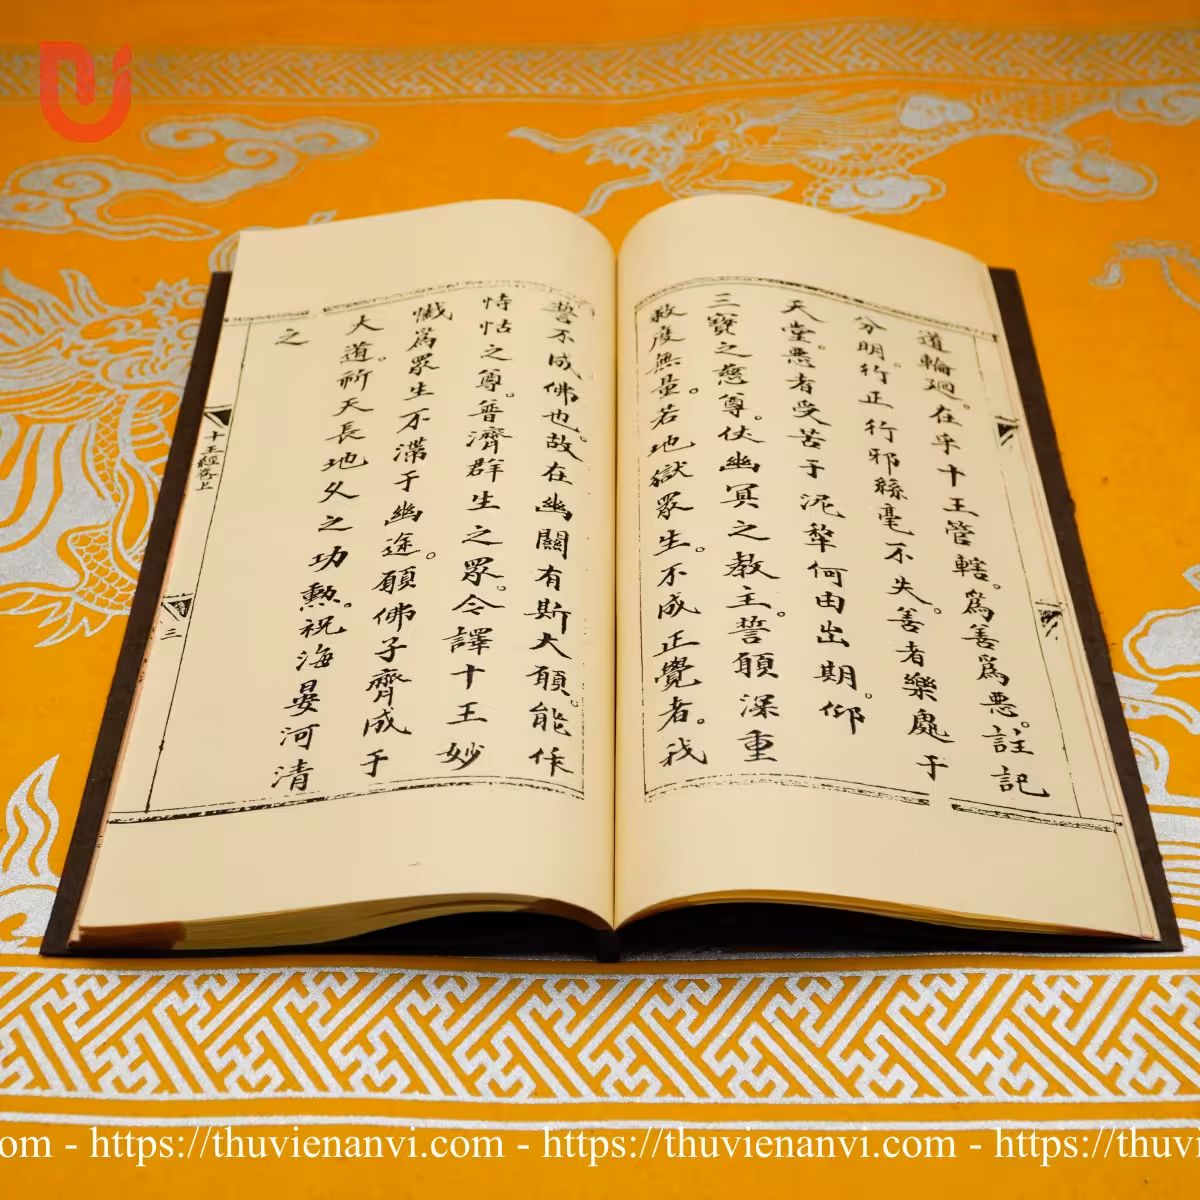 道輪廻。在乎十王管轄。爲善爲惡。註記
分明。行正行邪絲毫不失。善者樂處于
天堂。悪者受苦于泥犂何由出期。仰
三寶之慈尊。仗幽冥之教主。誓願深重
救度無量。若地獄眾生。不成正覺者。我
誓不成佛也。故在幽關有斯大願。能作
恃怙之尊。普濟群生之眾。今譯十王妙
懺爲眾生不滯于幽途。願佛子齊成于
大道。祈天長地久之功勲。祝海晏河清
之
十王經卷上
三
om - https://thuvienanvi.com - https://thuvienanvi.com - https://thuvi